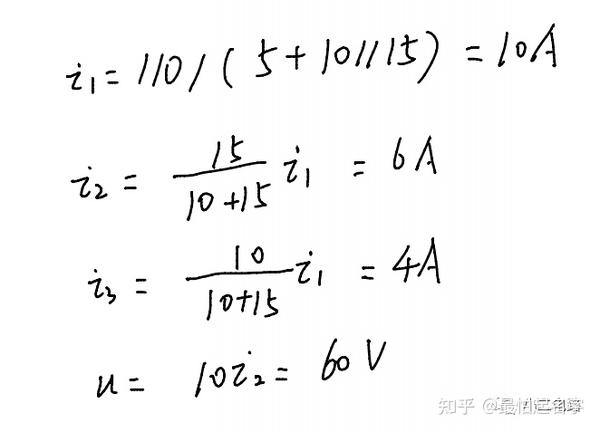 i₁ = 110 / ( 5 + 10 // 15 ) = 10A
i₂ = 15/(10+15) i₁ = 6A
i₃ = 10/(10+15) i₁ = 4A
u = 10i₂ = 60 V
知乎